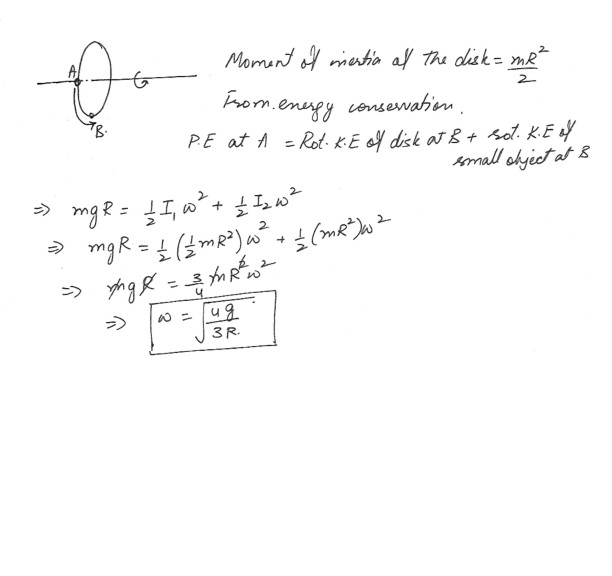 A
B.
Moment of inertia of the disk = mR²/2
From energy conservation.
P.E at A = Rot. K.E of disk at B + rot. K.E of
small object at B
⇒ mgR = 1/2 I₁ω² + 1/2 I₂ω²
⇒ mgR = 1/2 (1/2 mR²)ω² + 1/2 (mR²)ω²
⇒ mgR = 3/4 mR²ω²
⇒ ω = √(4g/3R.)